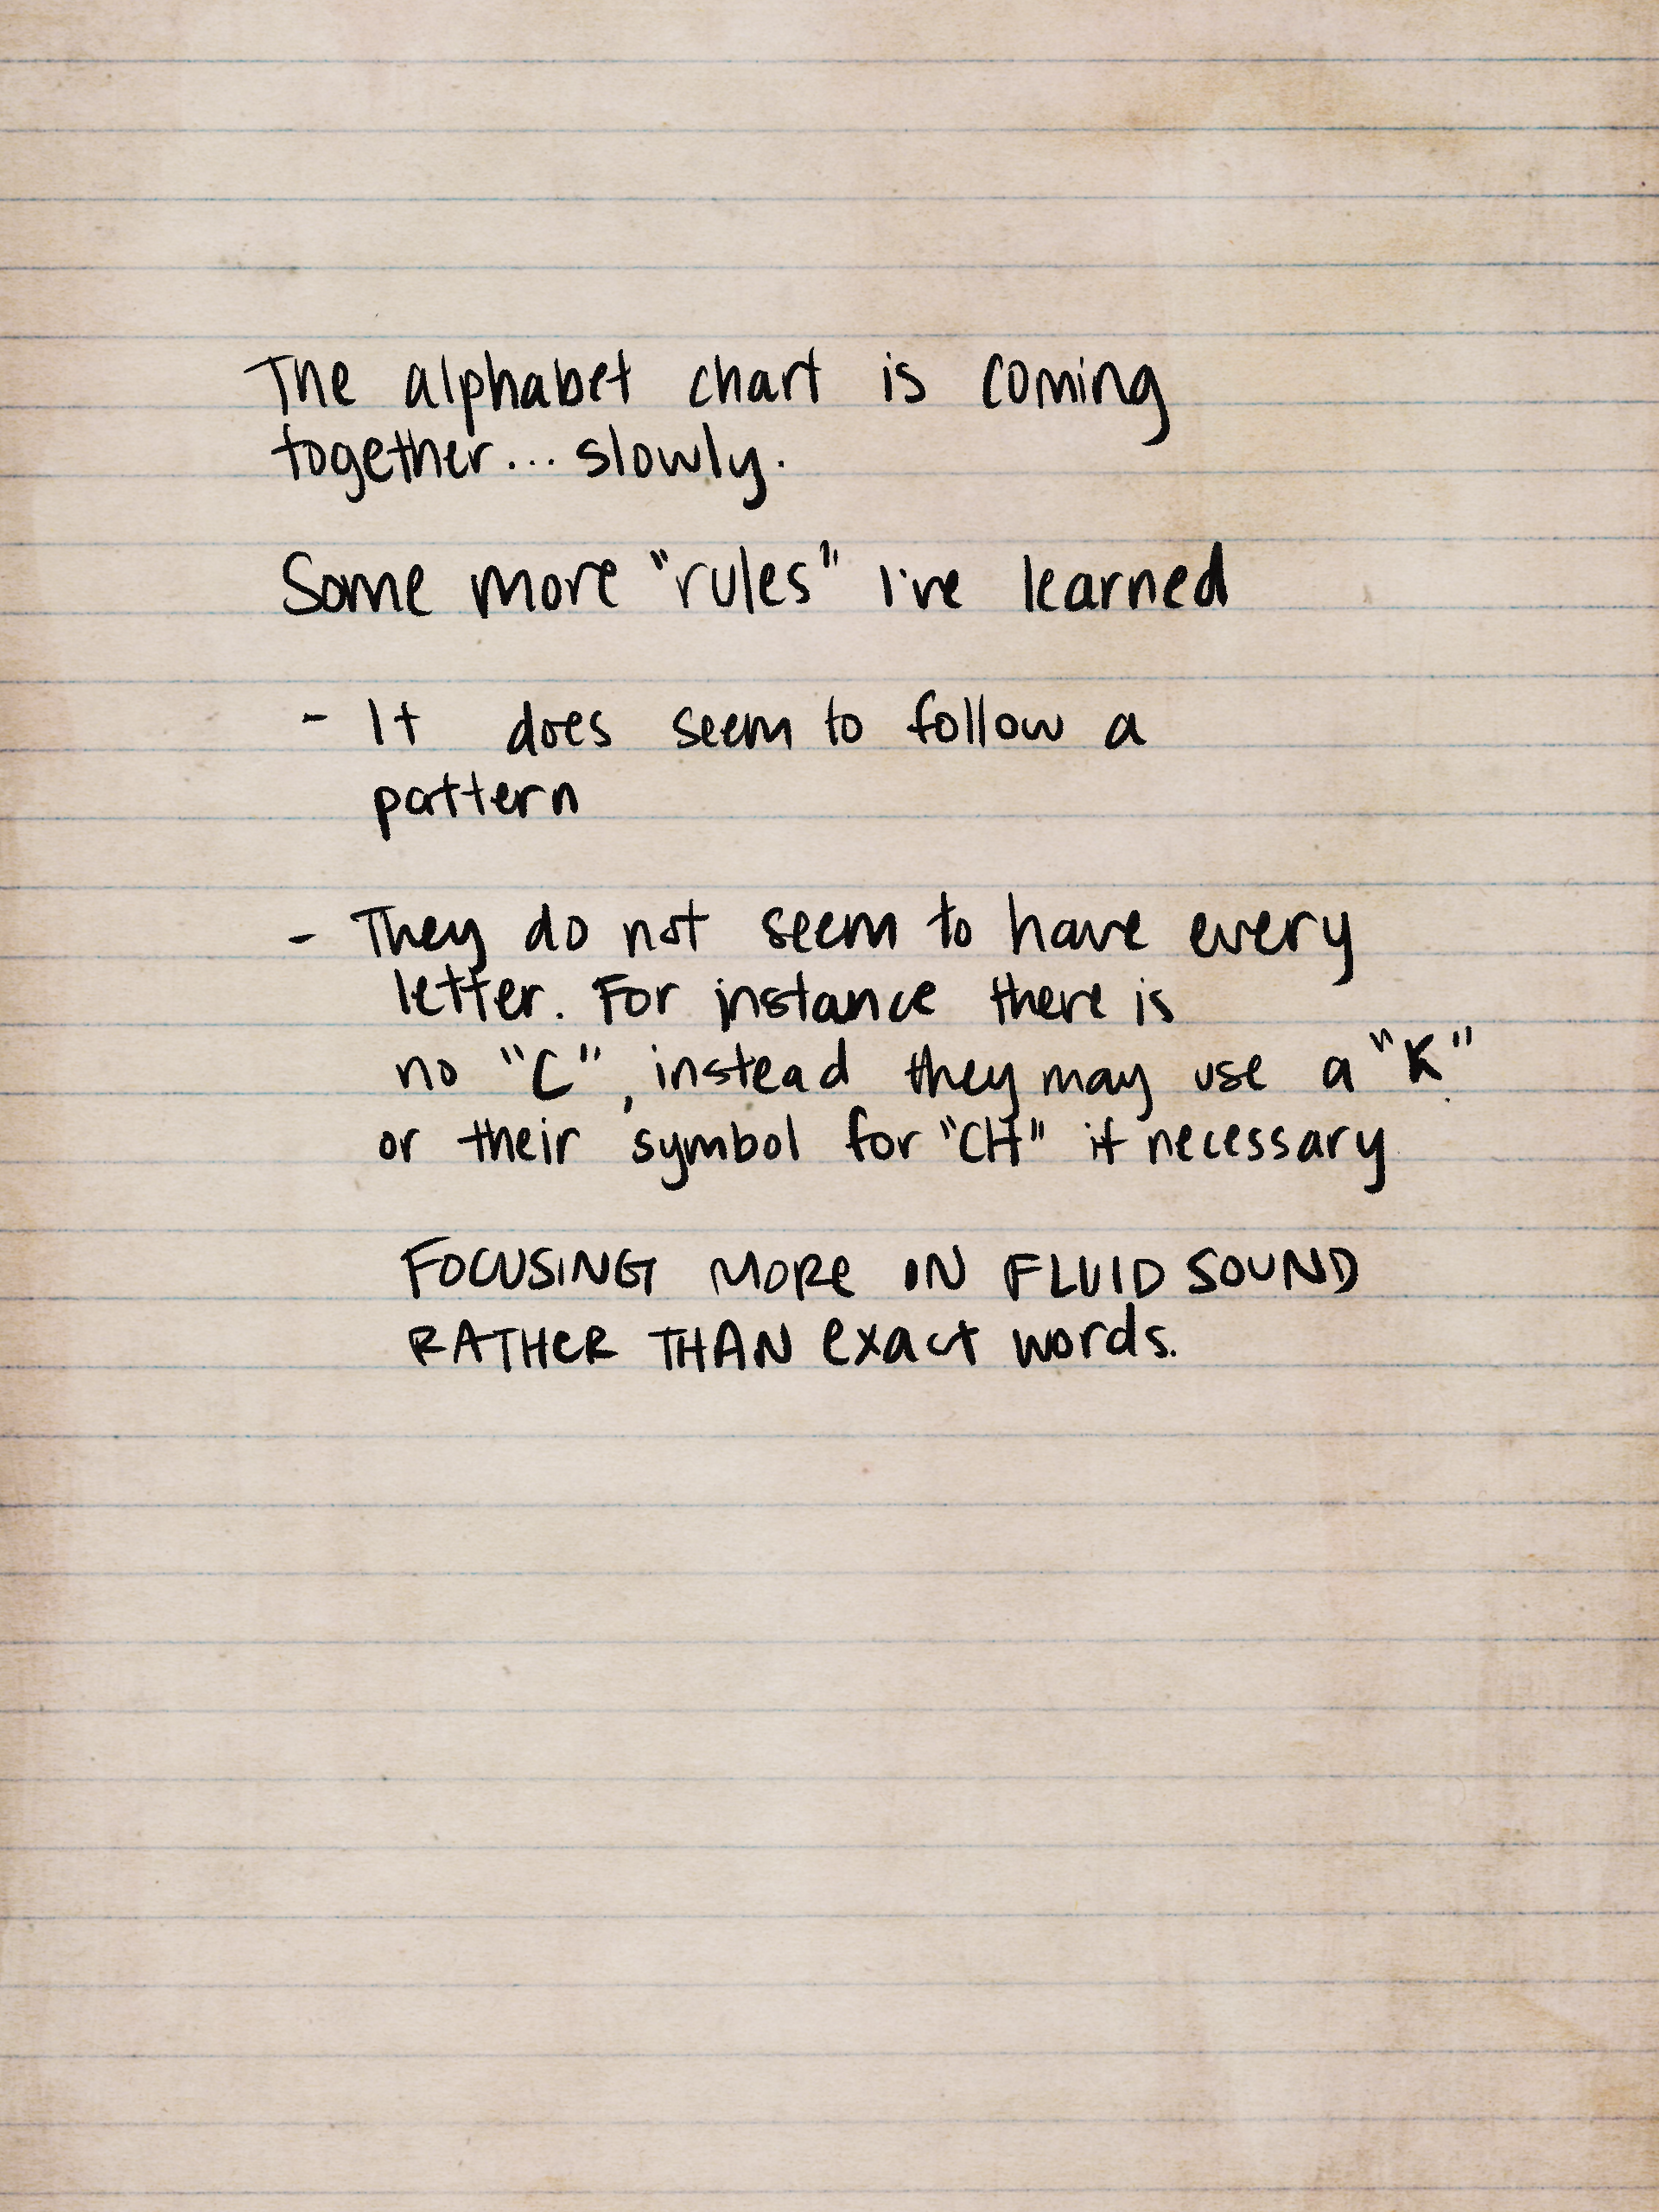 The alphabet chart is coming
together... slowly.
Some more "rules" I've learned
- It does seem to follow a
pattern
- They do not seem to have every
letter. For instance there is
no "C", instead they may use a "K".
or their symbol for "CH" if necessary
FOCUSING MORE IN FLUID SOUND
RATHER THAN exact words.